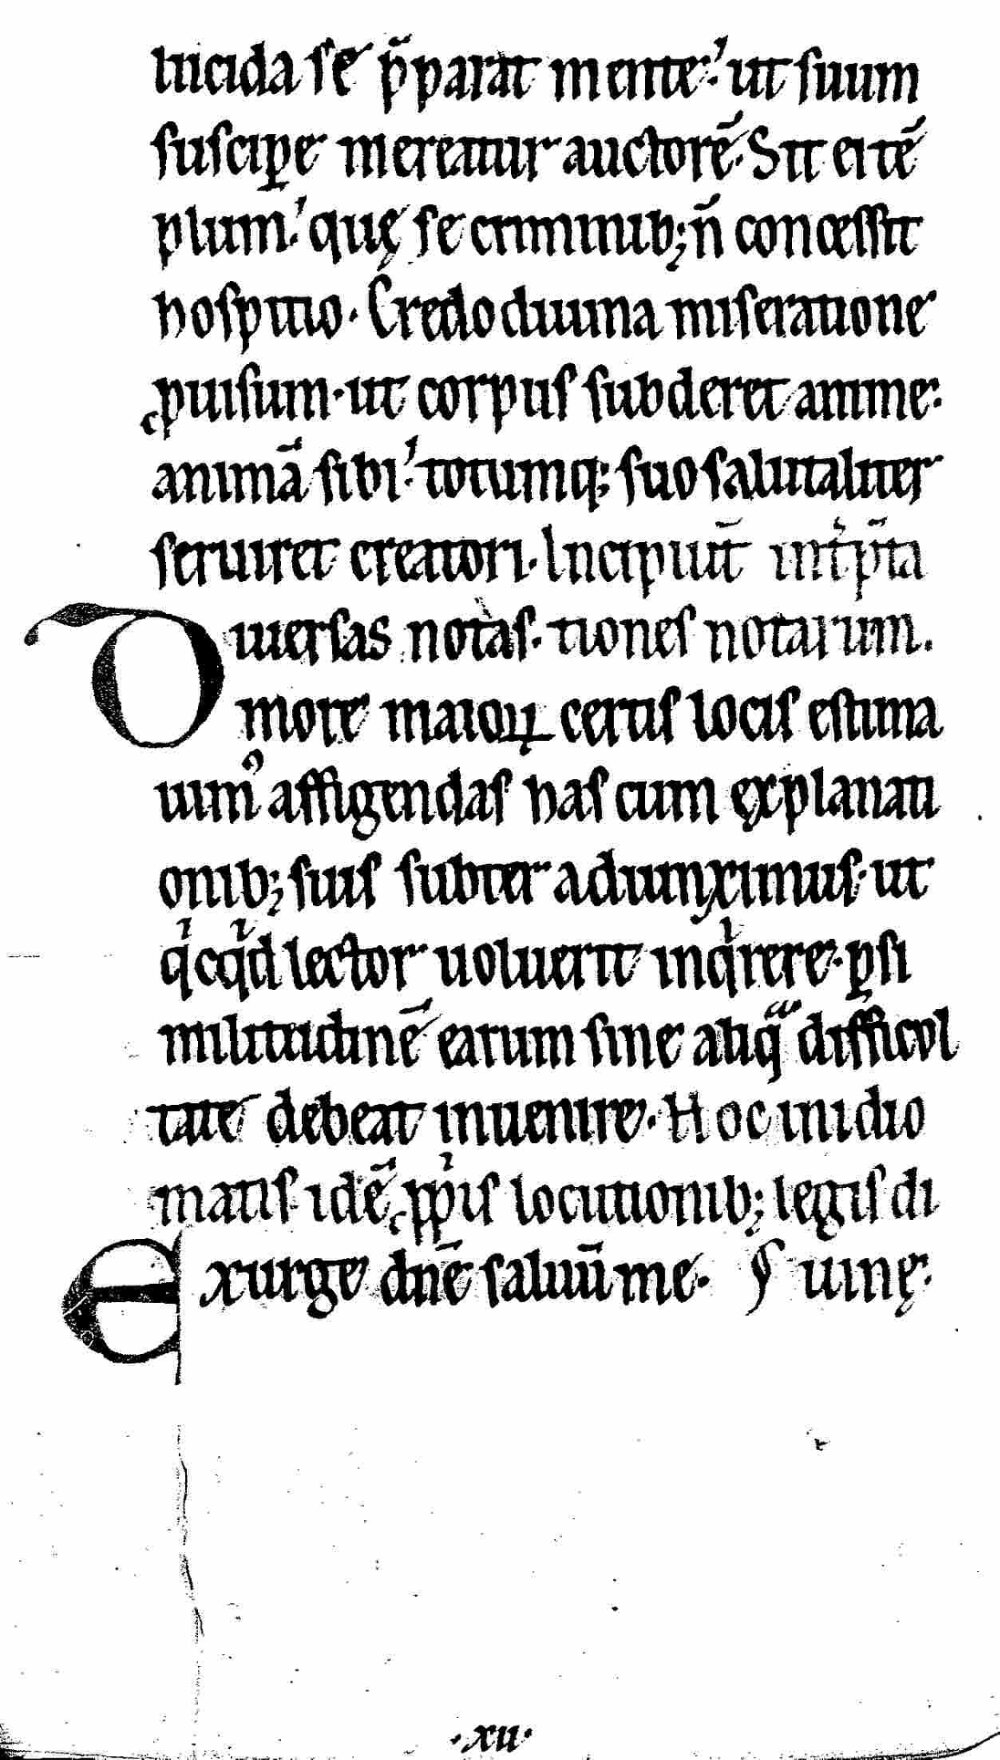 lucida se p̃parat mente. ut suum
suscipe mereatur auctorẽ. Sit ei tẽ
plum. quę se criminib; ñ concessit
hospitio. Credo diuina miseratione
ꝓuisum. ut corpus subderet anime.
animã sibi. totumq; suo salutaliter
seruiret creatori. Incipiut̃ int̓p̃ta
Diuersas notas. tiones notarum.
more maioꝝ certis locis estima
uim᾽ affigendas has cum explanati
onib; suis subter adiunximus. ut
qͥcqͥd lector uoluerit inqͥrere. ꝑ si
militudinẽ earum sine aliqͣ difficol
tate debeat inuenire. Hoc in idio
matis. idẽ ꝓpͥis locutionib; legis di
Exurge dñe saluũ me. uinę.
.xii.